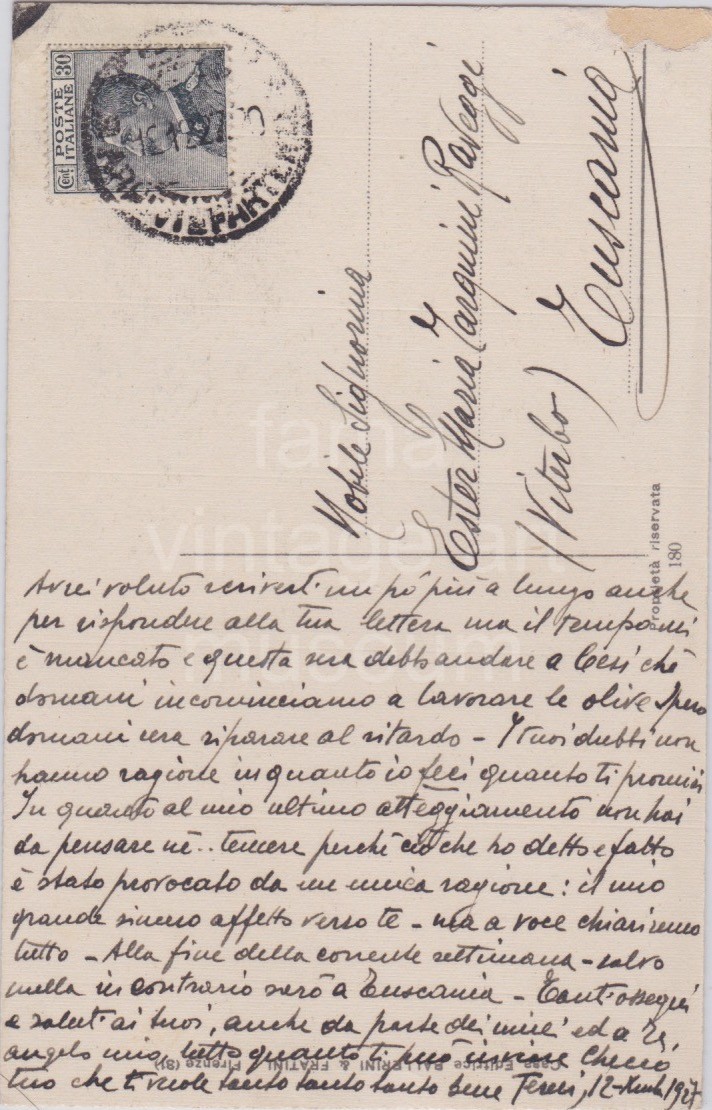 POSTE ITALIANE
Cent 30
Nobile Signorina
Ester Maria Tarquini Raveggi
(Viterbo) Tuscania
Proprietà riservata
180
fama
vintage art
Avrei voluto scriverti un pò più a lungo anche
per rispondere alla tua lettera ma il tempo mi
è mancato e questa sera debbo andare a Cesi chè
domani incominciamo a lavorare le olive Spero
domani sera riparare al ritardo – I tuoi dubbi non
hanno ragione in quanto io feci quanto ti promisi
In quanto al mio ultimo atteggiamento non hai
da pensare nè.. temere perchè ciò che ho detto e fatto
è stato provocato da un unica ragione: il mio
grande sincero affetto verso te – ma a voce chiariremo
tutto – Alla fine della corrente settimana – salvo
nulla in contrario sarò a Tuscania – Tanti ossequi
e saluti ai tuoi, anche da parte dei miei ed a te,
angelo mio, tutto quanto ti può inviare Checco
tuo che ti vuole tanto tanto tanto bene Terni, 12- 1927
Casa Editrice BALLERINI & FRATINI Firenze (81)